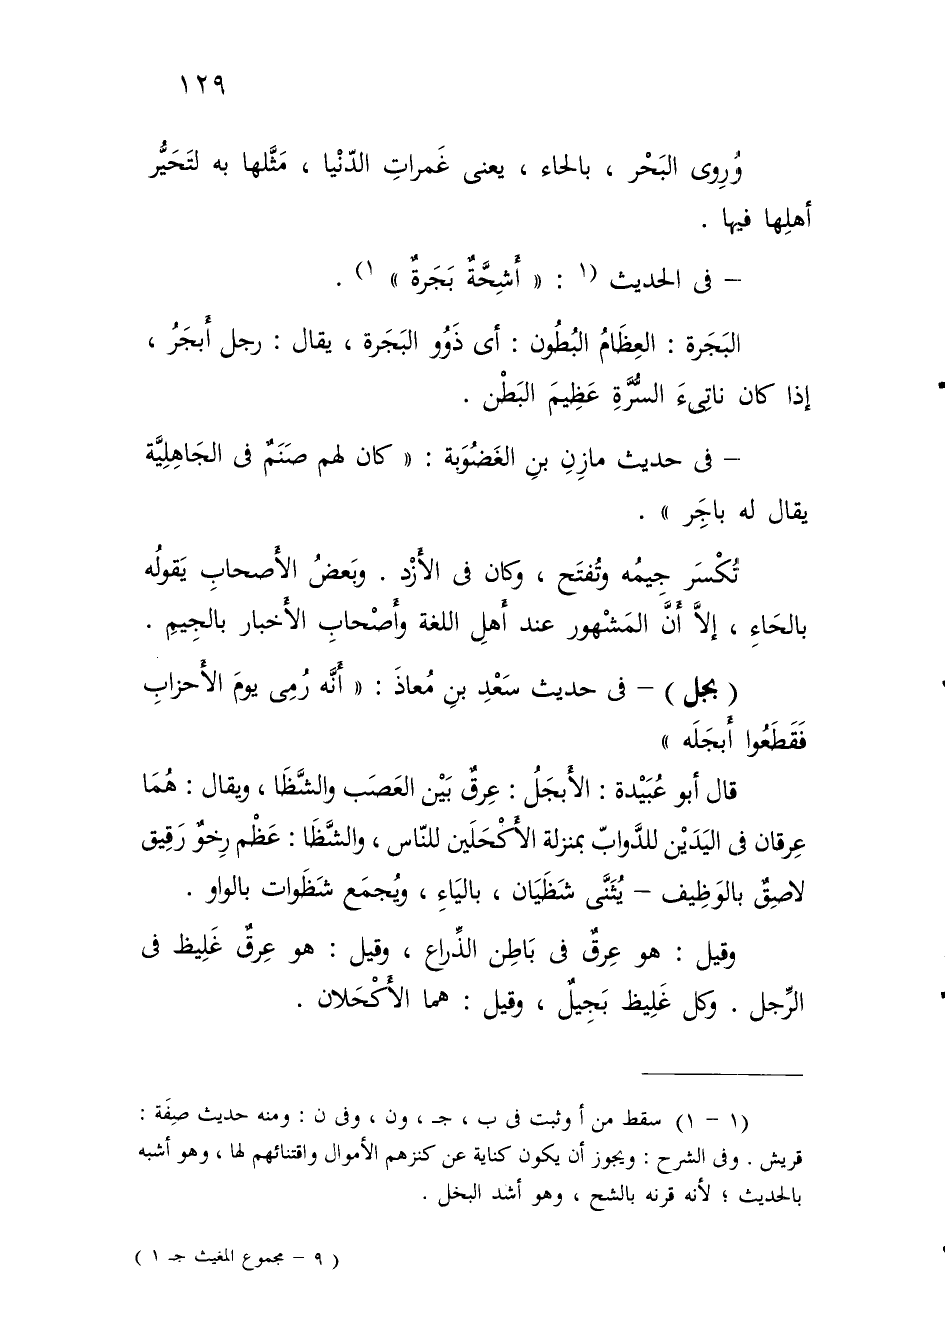 ١٢٩
وُرِوى البَحْر ، بالحاء ، يعنى غَمراتِ الدّنْيا ، مَثَّلها به لتَحَيُّر
أهلِها فيها .
– فى الحديث (١ : « أَشِحَّةٌ بَجَرةٌ » ١) .
البَجَرة : العِظَامُ البُطُون : أى ذَوُو البَجَرة ، يقال : رجل أَبجَرُ ،
إذا كان ناتِىءَ السُّرَّةِ عَظِيمَ البَطْن .
– فى حديث مازِنِ بنِ الغَضُوَبة : « كان لهم صَنَمٌ فى الجَاهِليَّة
يقال له باجَِر » .
تُكْسَر جِيمُه وتُفتَح ، وكان فى الأَزْد . وبَعضُ الأَصحابِ يَقولُه
بالحَاءِ ، إلاَّ أَنَّ المَشْهور عند أَهلِ اللغة وأَصْحابِ الأَخبار بالجِيمِ .
( بجل ) – فى حديث سَعْدِ بنِ مُعاذَ : « أَنَّه رُمِى يومَ الأَحزابِ
فَقَطَعُوا أَبجَلَه »
قال أبو عُبَيْدة : الأَبجَلُ : عِرقٌ بَيْن العَصَب والشَّظَا ، ويقال : هُمَا
عِرقان فى اليَدَيْن للدَّوابّ بمنزلة الأَكْحَلَين للنّاس ، والشَّظَا : عَظْم رِخوٌ رَقِيق
لاصِقٌ بالوَظِيف – يُثَنَّى شَظَيَان ، بالياءِ ، ويُجمَع شَظَوات بالواو .
وقيل : هو عِرقٌ فى بَاطِن الذِّراع ، وقيل : هو عِرقٌ غَلِيظ فى
الرِّجل . وكل غَلِيظ بَجِيلٌ ، وقيل : هما الأَكْحَلان .
(١ – ١) سقط من أ وثبت فى ب ، جـ ، ون ، وفى ن : ومنه حديث صِفَة :
قريش . وفى الشرح : ويجوز أن يكون كناية عن كنزهم الأموال واقتنائهم لها ، وهو أشبه
بالحديث ؛ لأنه قرنه بالشح ، وهو أشد البخل .
( ٩ – مجموع المغيث جـ ١ )